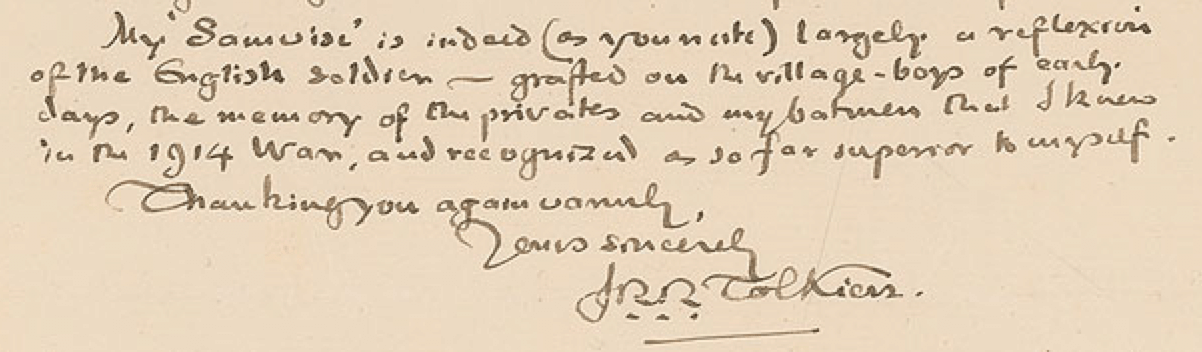 My 'Samwise' is indeed (as you note) largely a reflexion
of the English soldier — grafted on the village-boys of early
days, the memory of the privates and my batmen that I knew
in the 1914 War, and recognized as so far superior to myself.
Thanking you again warmly,
Yours sincerely
JRR Tolkien.